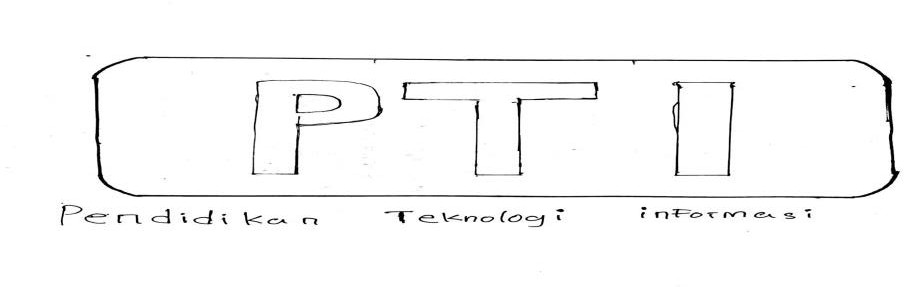 PTI
Pendidikan Teknologi informasi